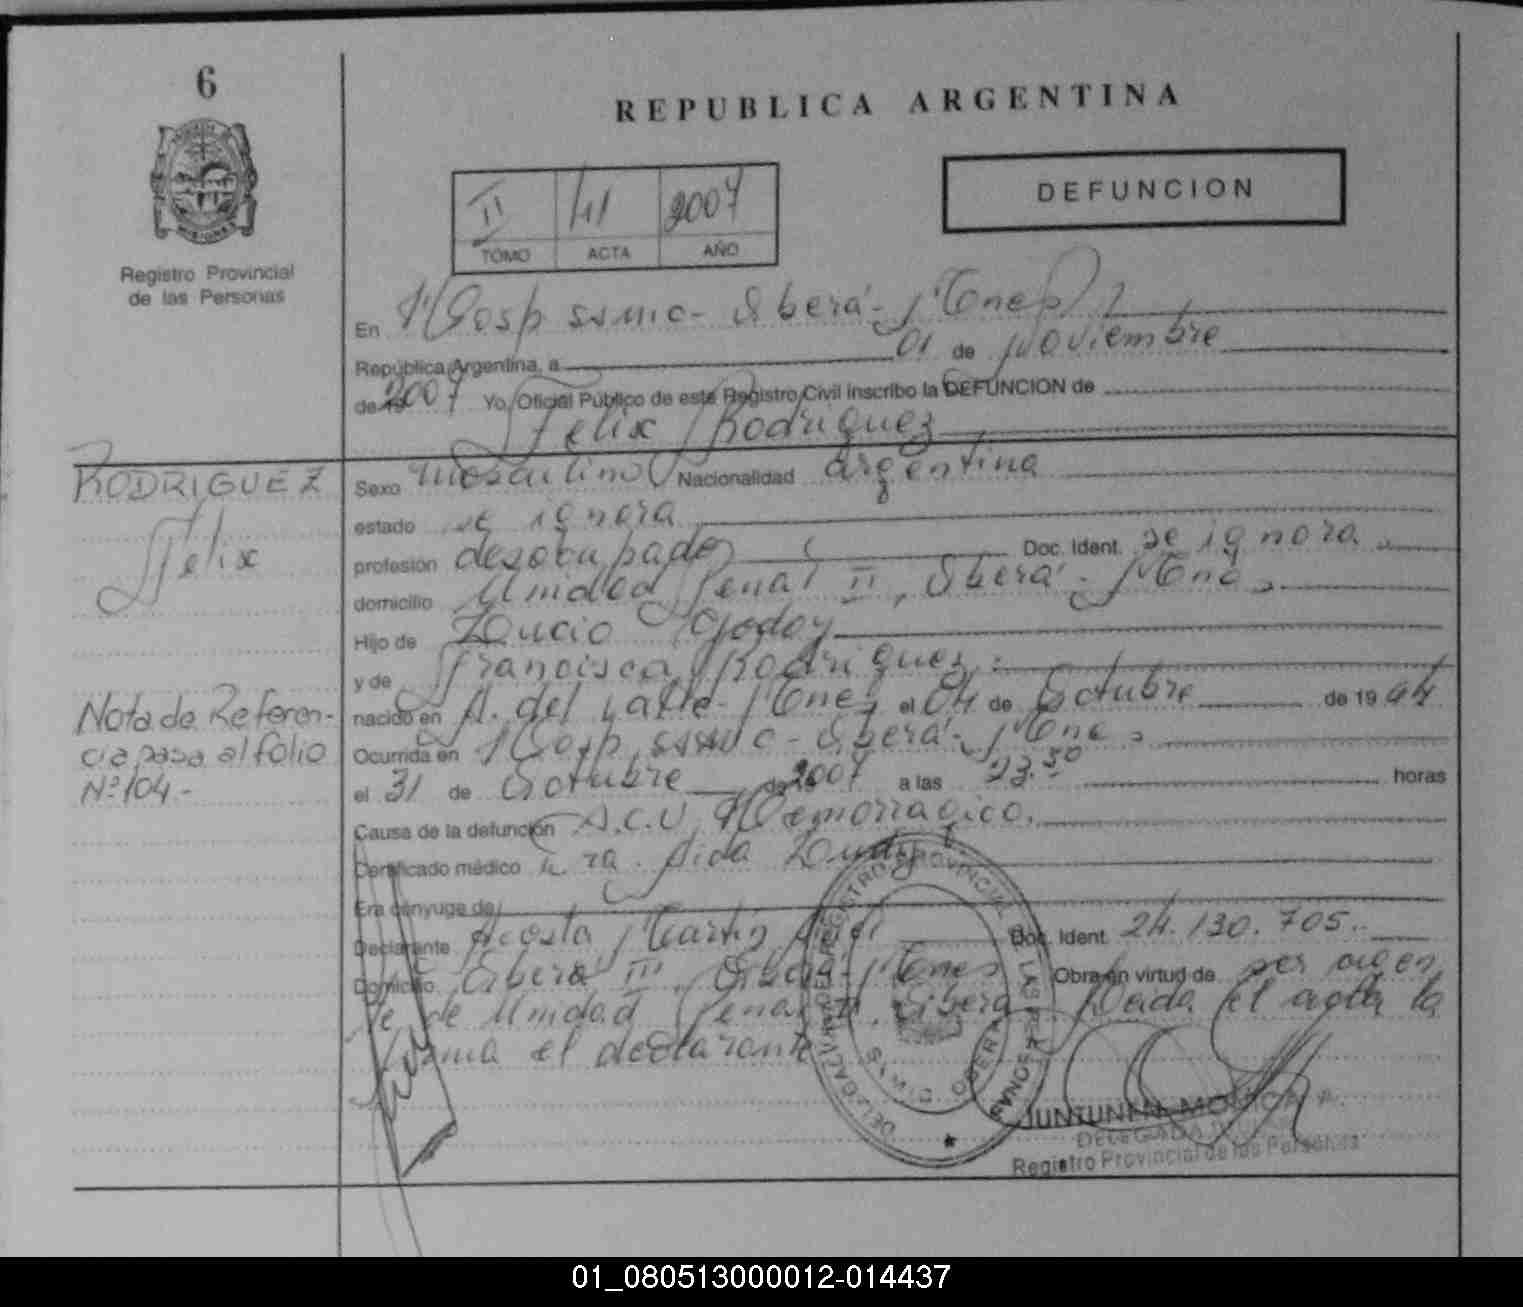 6
REPUBLICA ARGENTINA
DEFUNCION
II 41 2007
TOMO ACTA AÑO
Registro Provincial
de las Personas
En Hosp ssmic- Oberá- Mnes
República Argentina, a 01 de Noviembre
de 2007 Yo, Oficial Público de este Registro Civil inscribo la DEFUNCION de
Felix Rodriguez
RODRIGUEZ
Felix
Sexo masculino Nacionalidad argentina
estado se ignora
profesión desocupado Doc. Ident. se ignora
domicilio Unidad Penal II, Oberá- Mnes
Hijo de Lucio Godoy
y de Francisca Rodriguez.
Nota de Referen-
cia pasa al folio
Nº 104-
nacido en A. del Valle- Mnes el 04 de Octubre de 19 44
Ocurrida en Hosp. ssmic- Oberá- Mnes
el 31 de Octubre de 2007 a las 23.50 horas
Causa de la defunción A.C.V Hemorragico.
Certificado médico Dra. Aida
Era cónyuge de
Declarante Acosta Martin Doc. Ident. 24.130.705.
Domicilio Oberá III, Oberá- Mnes Obra en virtud de ser agen
te de Unidad Penal II, Oberá. Leida el acta la
firma el declarante
REGISTRO PROVINCIAL DE LAS PERSONAS
DELEGACION
OBERA
JUNTUNEN MONICA
DELEGADA
Registro Provincial de las Personas
01_080513000012-014437